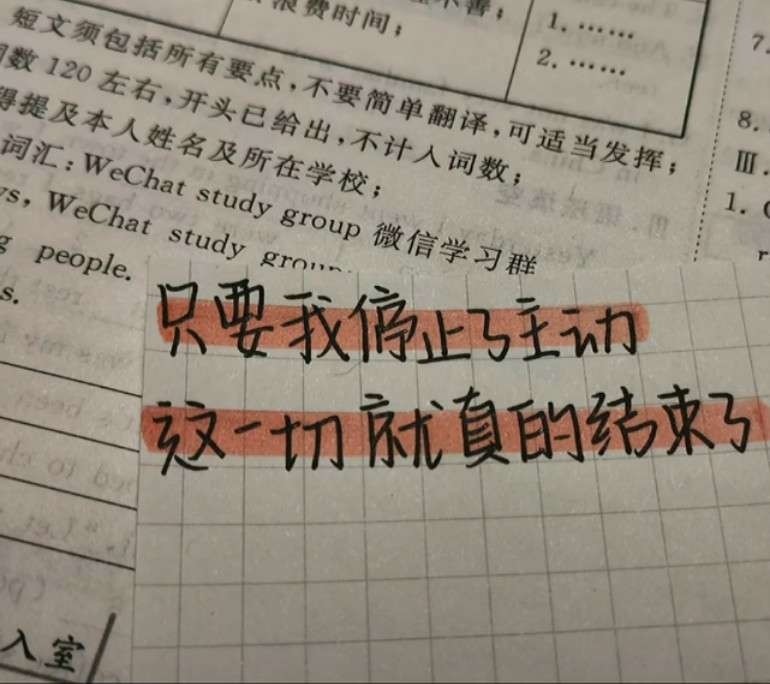 浪费时间；
不善；
1. ……
2. ……
短文须包括所有要点，不要简单翻译，可适当发挥；
数 120 左右，开头已给出，不计入词数；
得提及本人姓名及所在学校；
词汇：WeChat study group 微信学习群
ys, WeChat study group
g people.
s.
7.
8.
Ⅲ.
1.
只要我停止了主动
这一切就真的结束了
入室